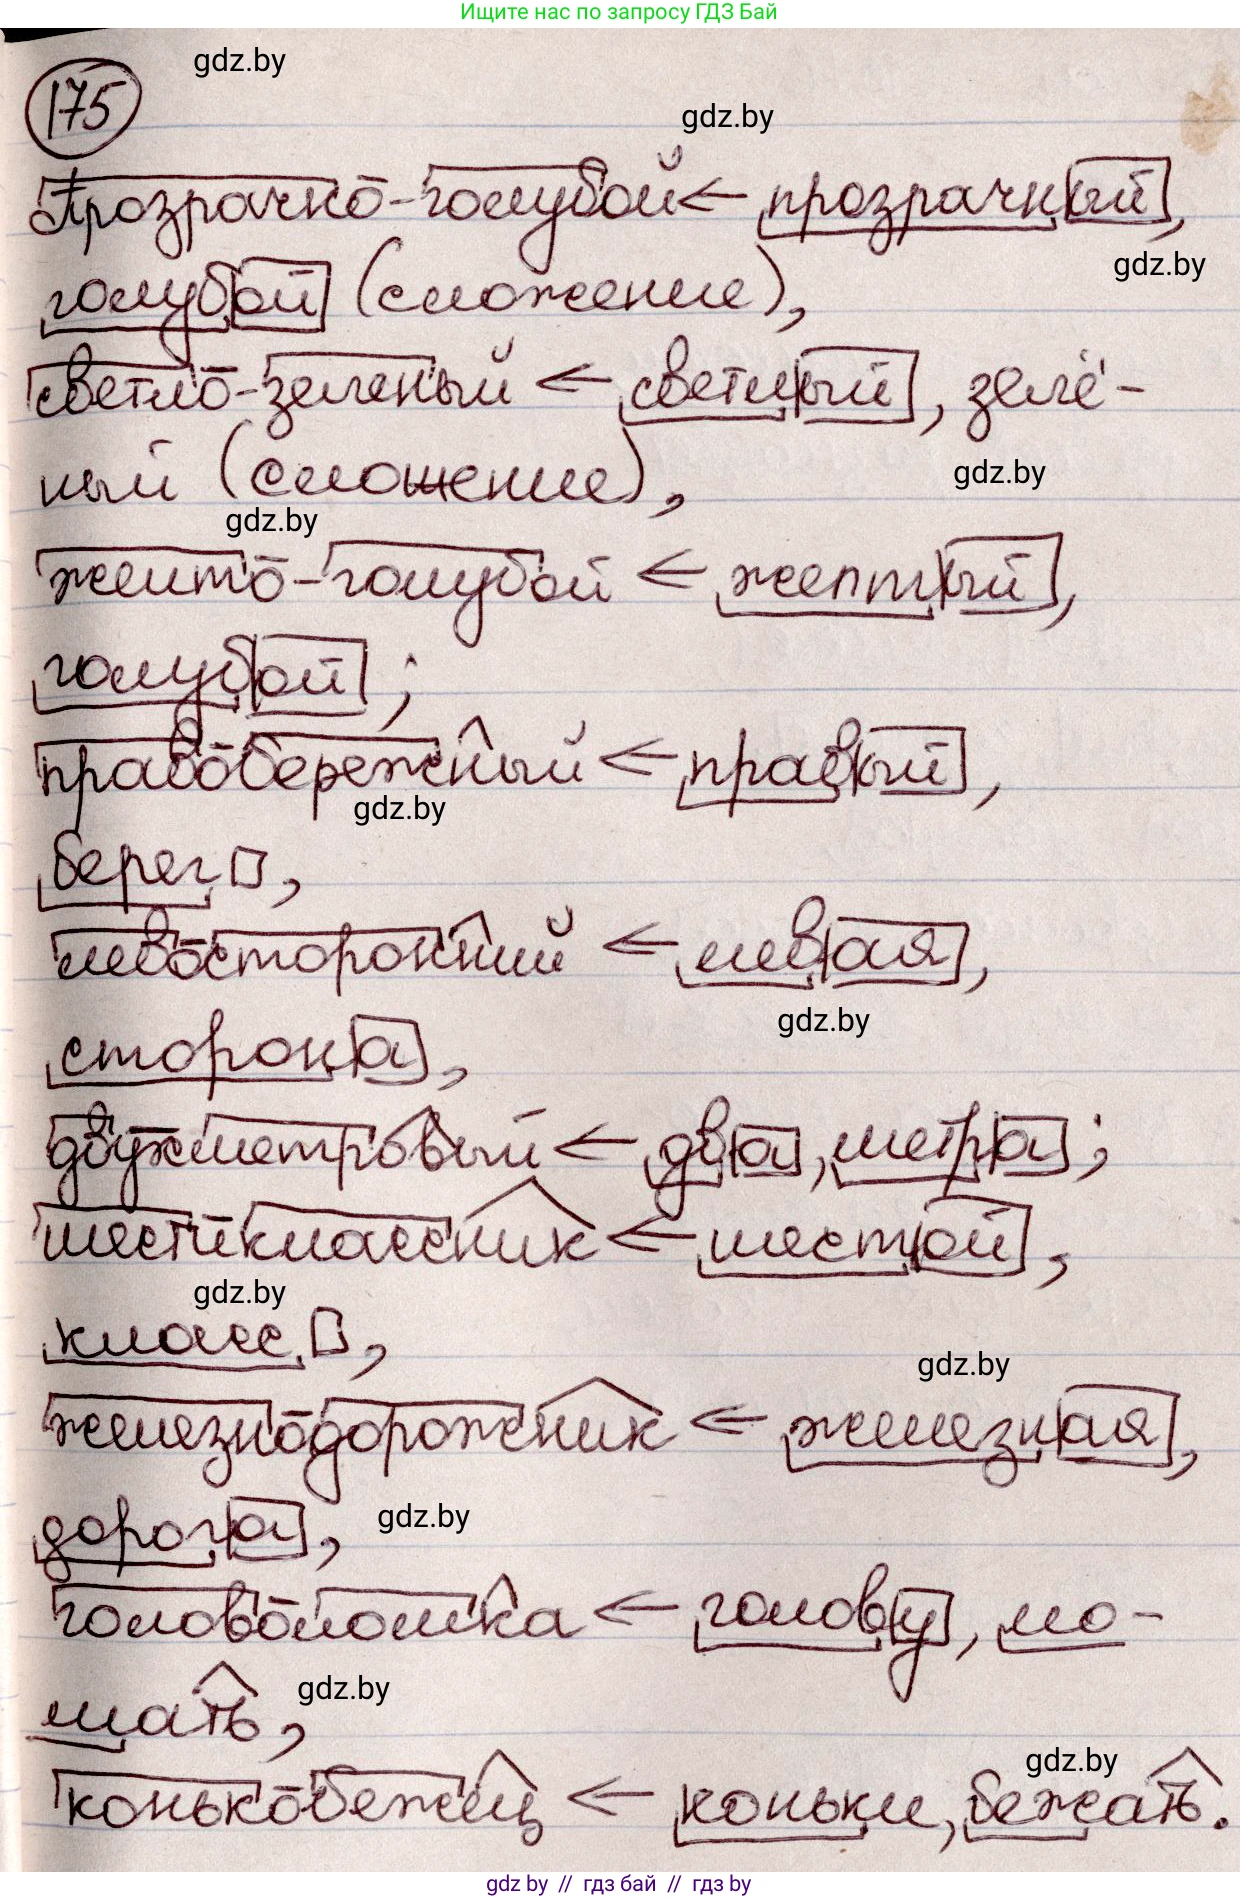 Ищите нас по запросу ГДЗ Бай
gdz.by
175
gdz.by
Прозрачно-голубой ← прозрачный,
gdz.by
голубой (сложение),
светло-зеленый ← светлый, зелё-
gdz.by
ный (сложение),
gdz.by
желто-голубой ← желтый,
голубой;
правобережный ← правый,
gdz.by
берег,
левосторонний ← левая,
gdz.by
сторона,
двухметровый ← два, метра;
шестиклассник ← шестой,
gdz.by
класс,
gdz.by
железнодорожник ← железная,
дорога,
gdz.by
головоломка ← голову, ло-
мать,
gdz.by
gdz.by
конькобежец ← коньки, бежать.
gdz by // гдз бай // gdz by